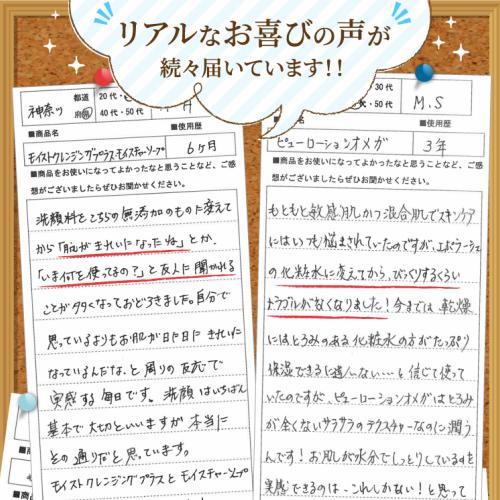 リアルなお喜びの声が
続々届いています!!
神奈川
都道
府県
20代・
40代・50代
■商品名
■使用歴
モイストクレンジングプラス・モイスチャーソープ
6ヶ月
■商品をお使いになってよかったなと思うことなど、ご感
想がございましたらぜひお聞かせください。
洗顔料をこちらの無添加のものに変えて
から「肌がきれいになったね」とか、
「いま何を使ってるの?」と友人に聞かれる
ことが多くなっておどろきました。自分で
思っているよりもお肌が日に日にきれいに
なっているんだな、と周りの反応で
実感する毎日です。洗顔はいちばん
基本で大切といいますが本当に
その通りだと思っています。
モイストクレンジングプラスとモイスチャーソープ
30代
・50代
M.S
■商品名
■使用歴
ピューローションオメガ
3年
■商品をお使いになってよかったなと思うことなど、ご感
想がございましたらぜひお聞かせください。
もともと敏感肌かつ混合肌でスキンケア
にはいつも悩まされていたのですが、エポラーシェ
の化粧水に変えてから、びっくりするくらい
トラブルがなくなりました!今までは乾燥
にはとろみのある化粧水の方がたっぷり
保湿できるに違いない…と信じて使って
いたのですが、ピューローションオメガはとろみ
が全くないサラサラのテクスチャーなのに潤う
んです!お肌が水分でしっとりしているのを
実感できるのは…これしかない!と思って